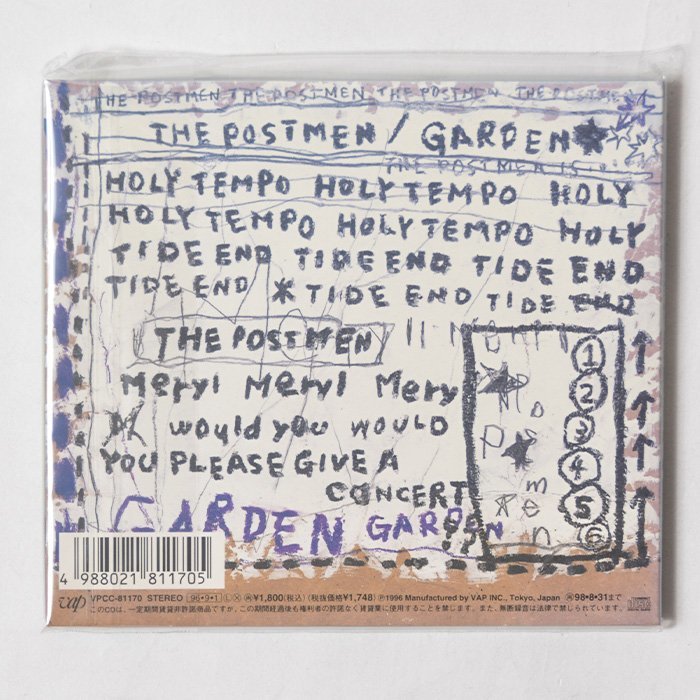 THE POSTMEN THE POSTMEN THE POSTMEN THE POSTMEN
THE POSTMEN / GARDEN*
THE POSTMEN IS...
HOLY TEMPO HOLY TEMPO HOLY
HOLY TEMPO HOLY TEMPO HOLY
TIDE END TIDE END TIDE END
TIDE END * TIDE END TIDE END
THE POSTMEN
Meryl Meryl Mery
would you WOULD
YOU PLEASE GIVE A
CONCERT
??
GARDEN GARDEN
Postmen
1
2
3
4
5
6
4 988021 811705
vap VPCC-81170 STEREO 96・9・1 L X ¥1,800(税込) (税抜価格¥1,748) Ⓟ1996 Manufactured by VAP INC., Tokyo, Japan 98・8・31まで
このCDは、一定期間賃貸非許諾商品ですが、この期間経過後も権利者の許諾なく賃貸業に使用することを禁じます。また、無断録音は法律で禁じられています。